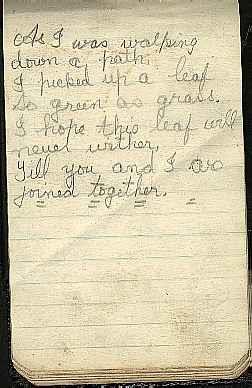 As I was walking
down a path
I picked up a leaf
So green as grass.
I hope this leaf will
never wither,
Till you and I are
joined together.